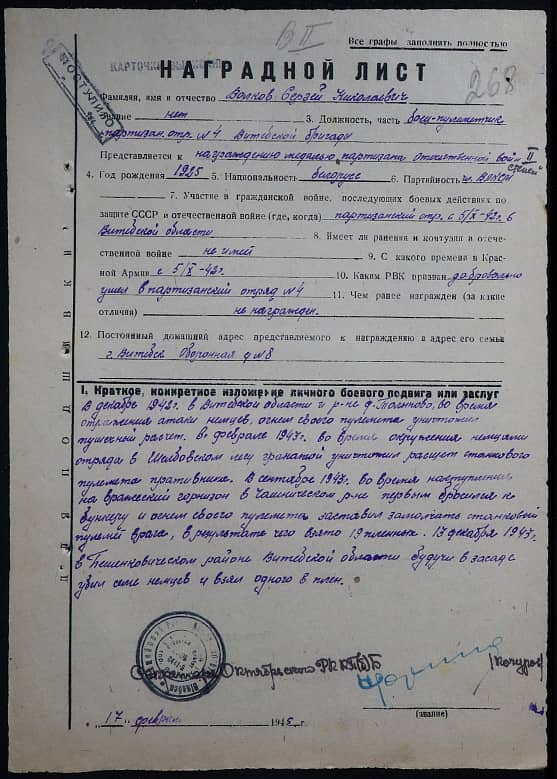 В II
Все графы заполнять полностью
ПОСТУПИЛО
268
НАГРАДНОЙ ЛИСТ
Фамилия, имя и отчество Волков Сергей Николаевич
звание нет 3. Должность, часть боец-пулеметчик
партизан. отр. №4 Витебской бригады
Представляется к награждению медалью партизана Отечественной войн II степени
4. Год рождения 1925 5. Национальность белорусс 6. Партийность чл. ВЛКСМ
7. Участие в гражданской войне, последующих боевых действиях по
защите СССР и отечественной войне (где, когда) партизанский отр. с 5/X-42г. в
Витебской области 8. Имеет ли ранения и контузии в отече-
ственной войне не имеет 9. С какого времени в Крас-
ной Армии с 5/X-42г. 10. Каким РВК призван добровольно
ушел в партизанский отряд №4 11. Чем ранее награжден (за какие
отличия) не награжден.
12. Постоянный домашний адрес представляемого к награждению и адрес его семьи
г. Витебск Оборонная д №8
ДЛЯ ПОДШИВКИ
I. Краткое, конкретное изложение личного боевого подвига или заслуг
В декабре 1942г. в Витебской области и р-не д. во время
отражения атаки немцев, огнем своего пулемета уничтожил
пушечный расчет. В феврале 1943г. во время окружения немцами
отряда в лесу гранатой уничтожил расчет станкового
пулемета пративника. В сентябре 1943г. во время наступления
на вражеский горнизон в Чашническом р-не первым бросился к
бункеру и огнем своего пулемета заставил замолчать станковый
пулемёт врага, в результате чего взято 19 пленных. 13 декабря 1943г.
в Бешенковическом районе Витебской области будучи в засаде
убил семь немцев и взял одного в плен.
Секретарь Октябрьского РК КП(б)Б
(звание)
" 17 " феврал 1945 г